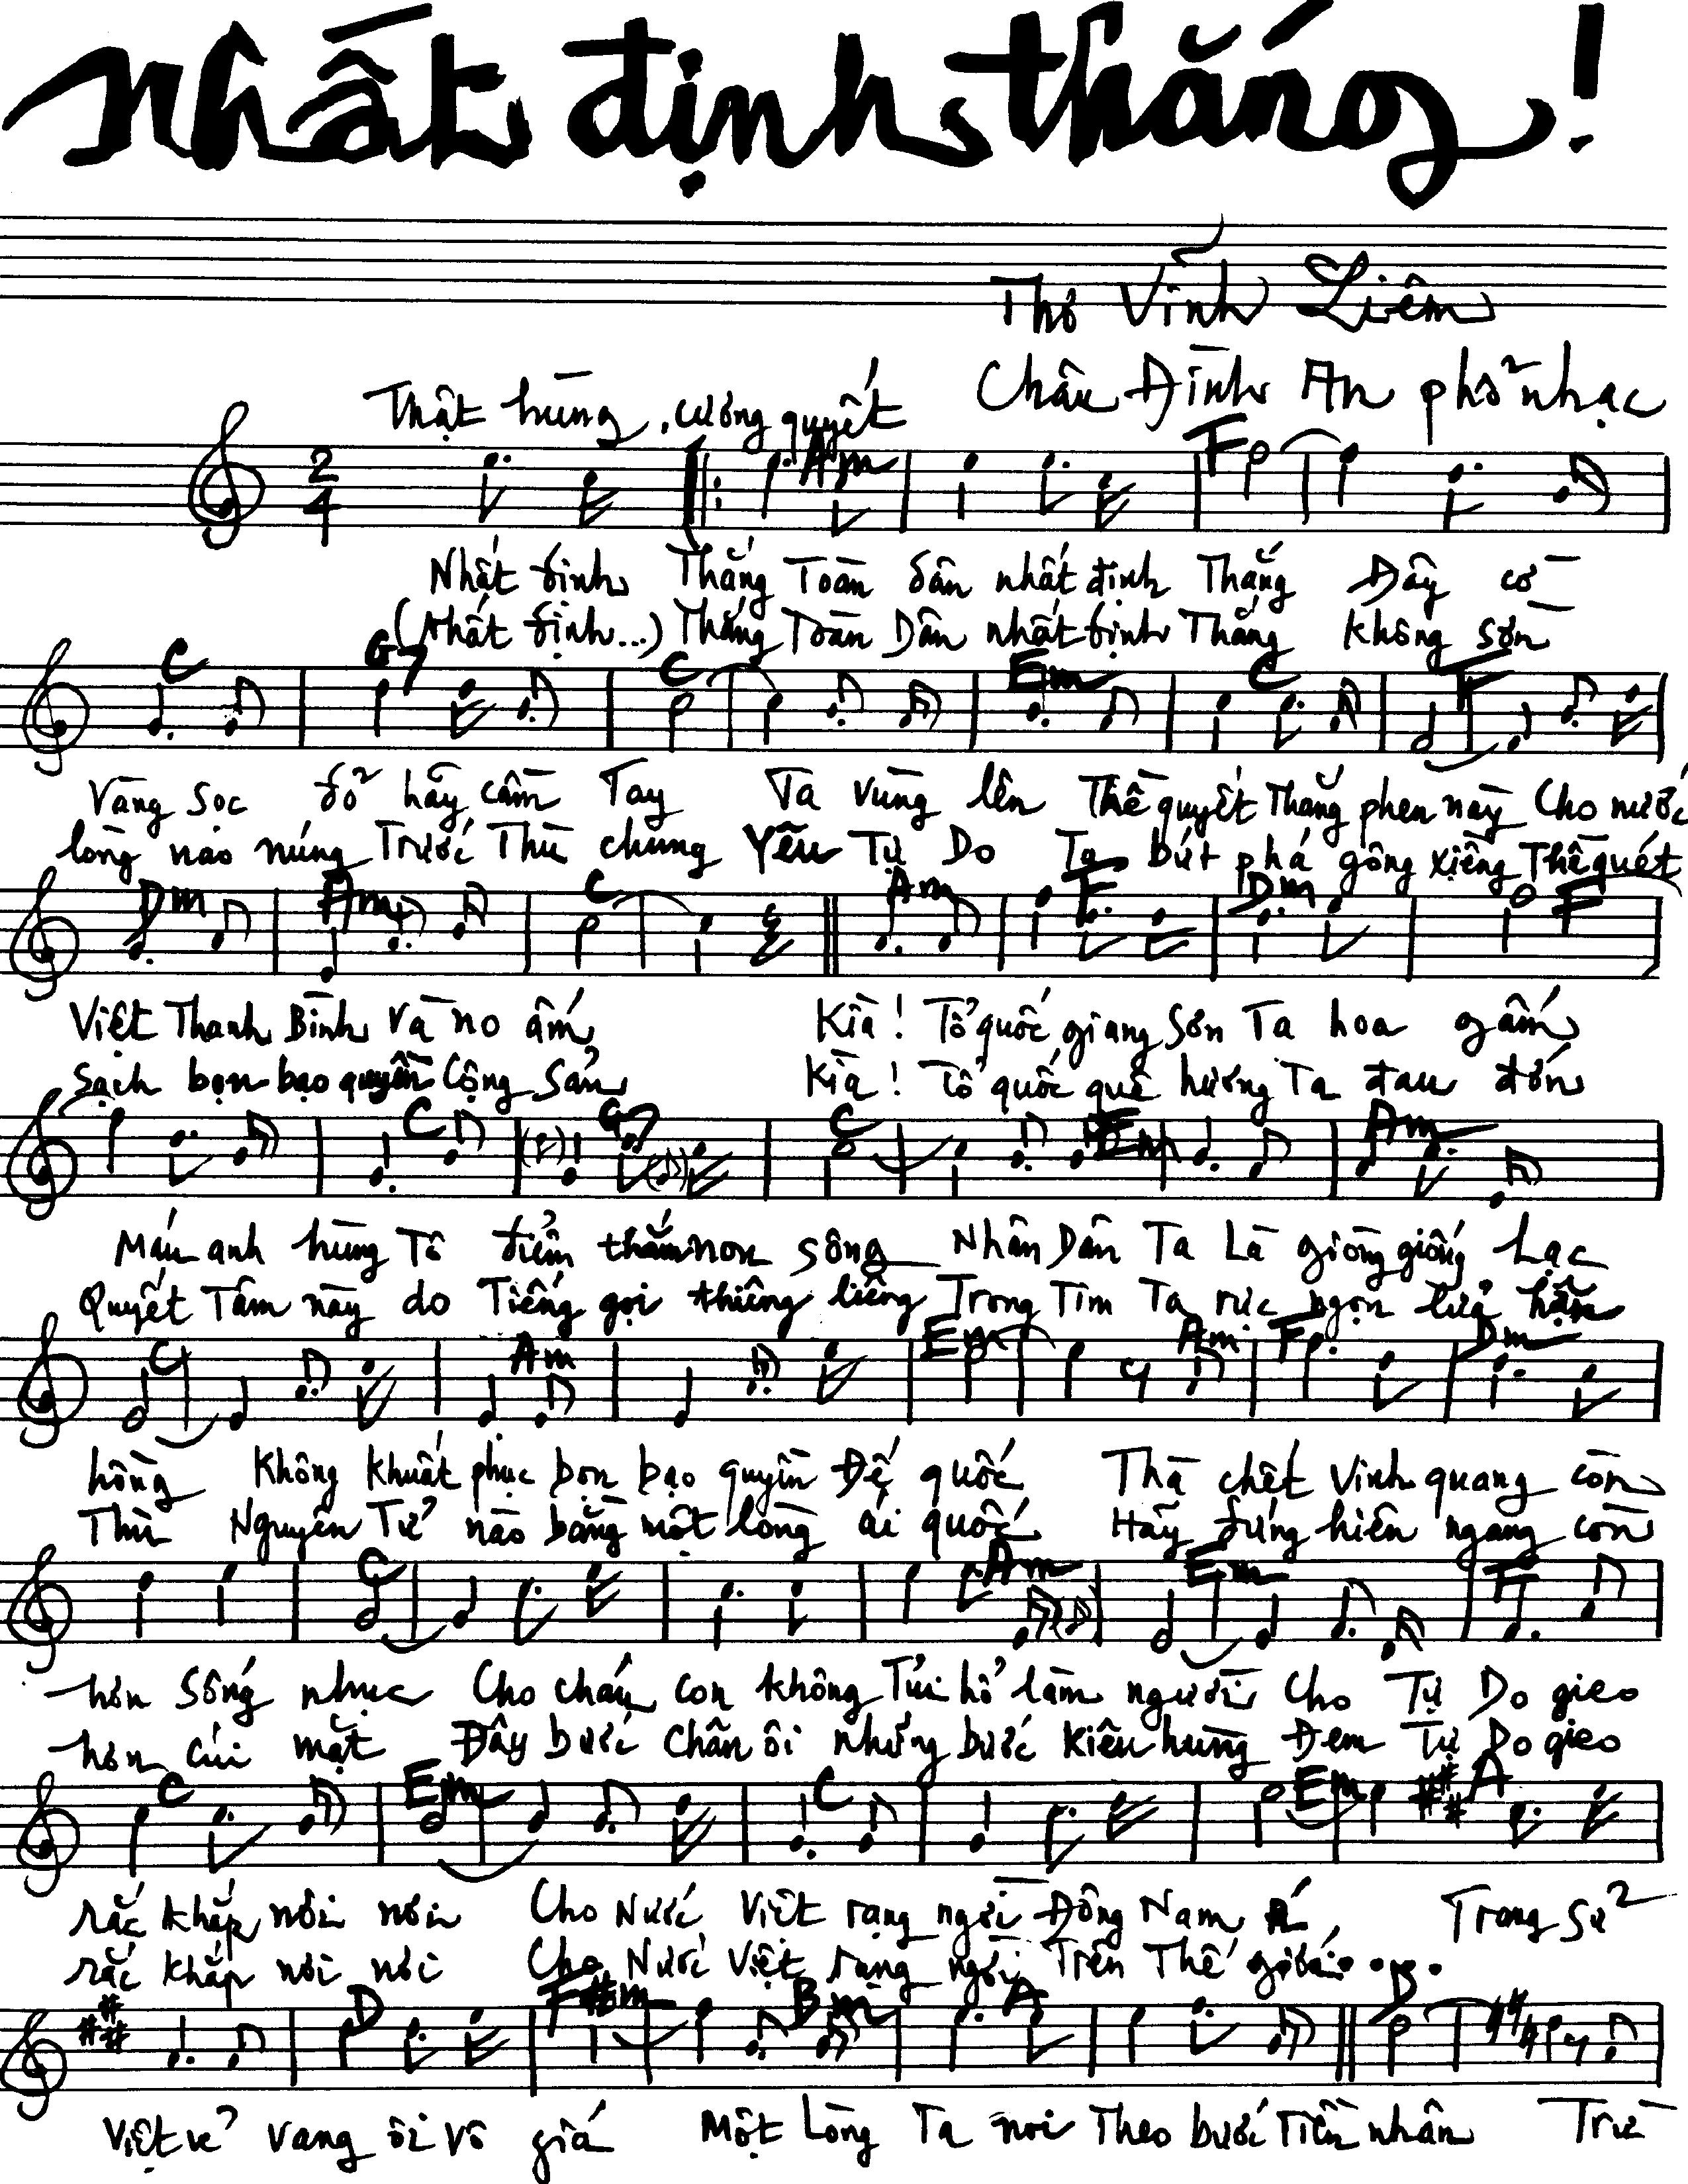 Nhất định thắng!
Thơ Vĩnh Liêm
Châu Đình An phổ nhạc
Thật hùng, cương quyết
2
4
Am F
Nhất định Thắng Toàn dân nhất định Thắng Đây cờ
(Nhất định...) Thắng Toàn Dân nhất định Thắng không sờn
C G7 C Em C F
Vàng sọc đỏ hãy cầm Tay Ta vùng lên Thề quyết Thắng phen này Cho nước
lòng nao núng Trước Thù chung Yêu Tự Do Ta bứt phá gông xiềng Thề quét
Dm Am C Am F Dm F
Việt Thanh Bình Và no ấm Kìa! Tổ quốc giang Sơn Ta hoa gấm
sạch bọn bạo quyền Cộng Sản Kìa! Tổ quốc quê hương Ta đau đớn
C G7 C Em Am
Máu anh hùng Tô điểm thắm non sông Nhân Dân Ta Là giòng giống Lạc
Quyết Tâm này do Tiếng gọi thiêng liêng Trong Tim Ta rực ngọn lửa hận
C Am Em Am F Dm
hồng Không khuất phục bọn bạo quyền Đế quốc Thà chết Vinh quang còn
Thù Nguyên Tử nào bằng một lòng ái quốc Hãy đứng hiên ngang còn
C Am Em F
hơn Sống nhục Cho cháu con không Tủi hổ làm người Cho Tự Do gieo
hơn cúi mặt Đây bước chân ôi những bước kiêu hùng Đem Tự Do gieo
C Em C Em A
rắc khắp nơi nơi Cho Nước Việt rạng ngời Đông Nam Á Trang Sử
rắc khắp nơi nơi Cho Nước Việt rạng ngời Trên Thế giới....
D F#m Bm A D
Việt vẻ vang ôi vô giá Một Lòng Ta noi Theo bước Tiền nhân Trừ